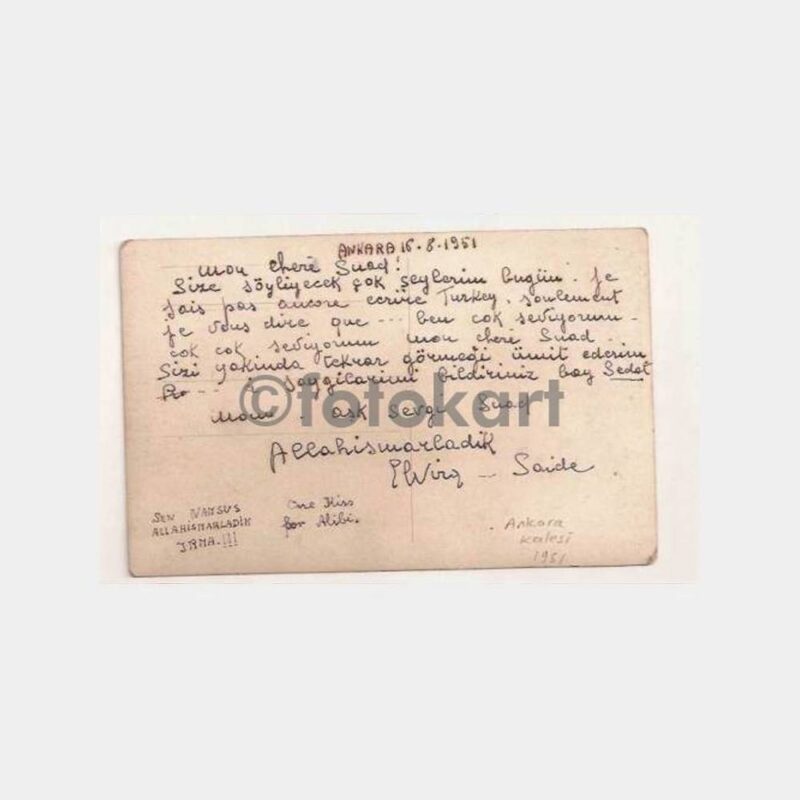 ANKARA 16.8.1951
Mon cherè Suad!
Size söyliyecek çok şeylerim bugün. Je
sais pas ancore ecrire Turkey, soulement
je vous dire que --- ben cok seviyorum -
cok cok seviyorum mon cherè Suad.
Sizi yakinda tekrar görmeği ümit ederim
--- saygilarimi bildiriniz bay Sedat
Mon ask sevgi Suad
Allahismarladik
Elvira - Saide
SEN NAMSUS
ALLAHISMARLADIK
IRMA.!!!
One Kiss
for Alibi.
Ankara
Kalesi
1951
©fotokart